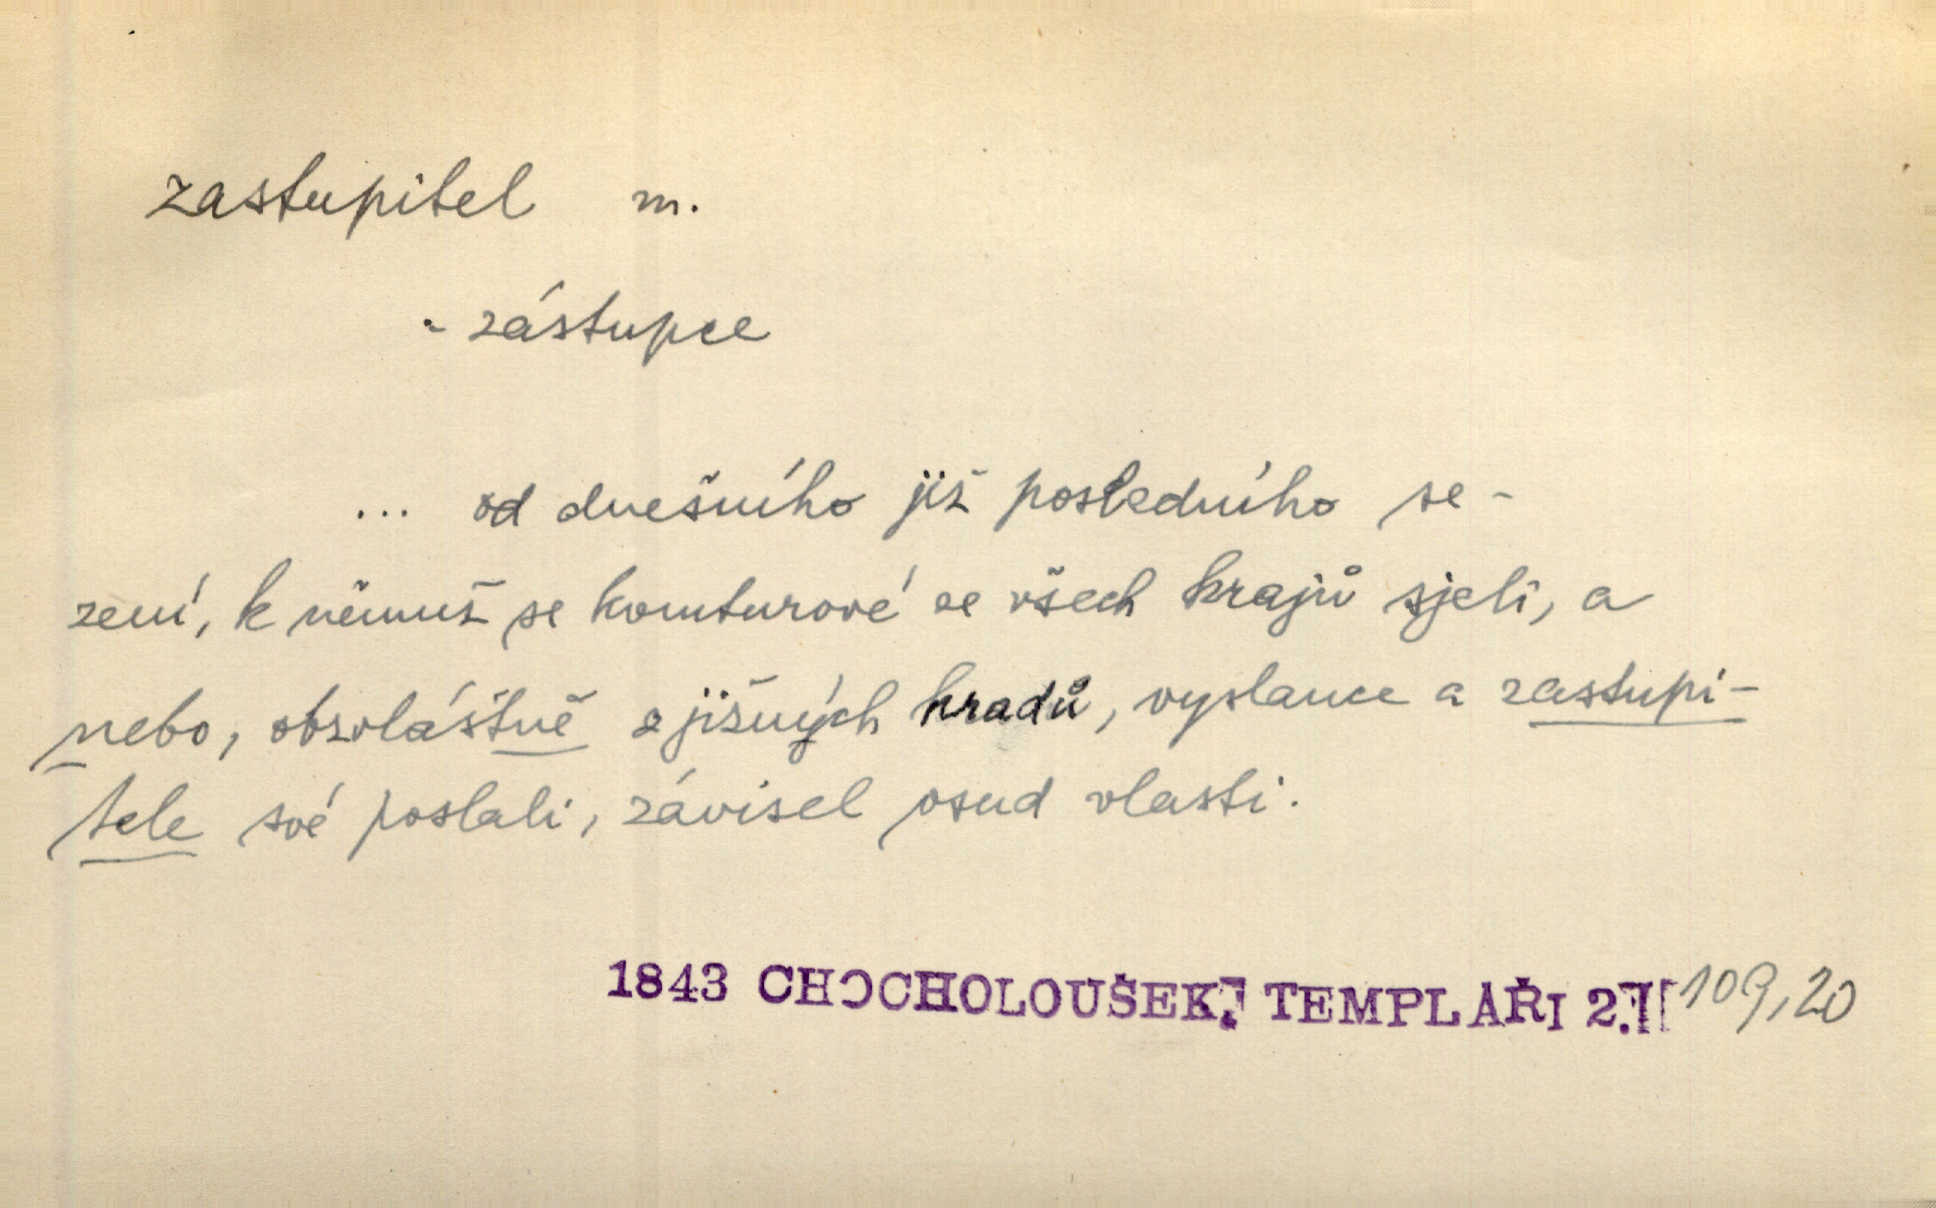 zastupitel m.
- zástupce
... od dnešního již posledního se-
zení, k němuž se komturové ze všech krajů sjeli, a
nebo, obzvláštně z jižných hradů, vyslance a zastupi-
tele své poslali, závisel osud vlasti.
1843 CHOCHOLOUŠEK, TEMPLÁŘI 2. 109,20